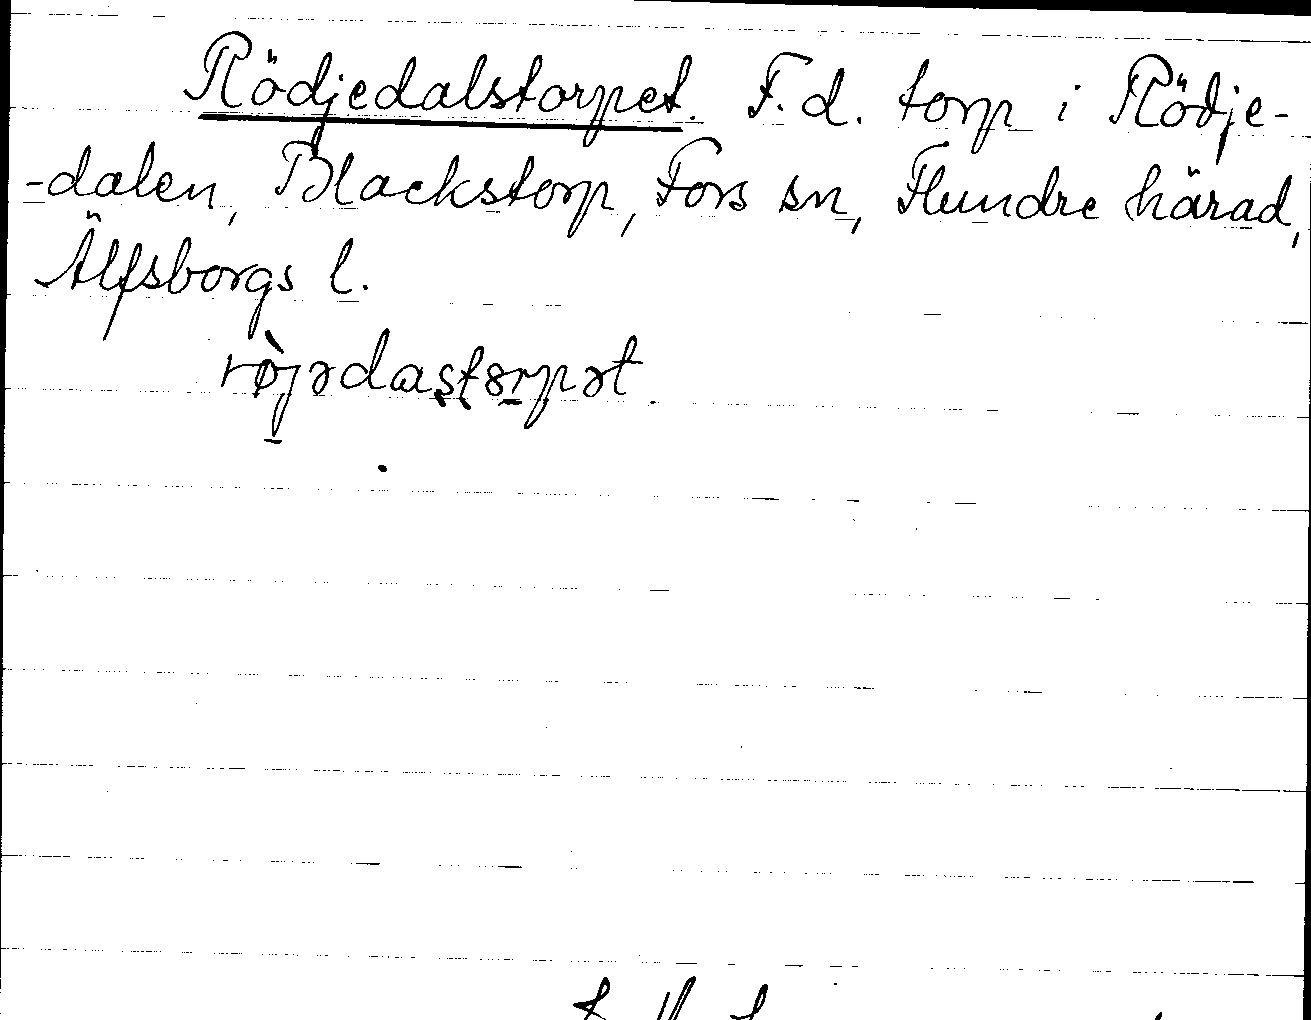 Rödjedalstorpet. F.d. torp i Rödje-
-dalen, Blackstorp, Fors sn, Flundre härad,
Älfsborgs l.